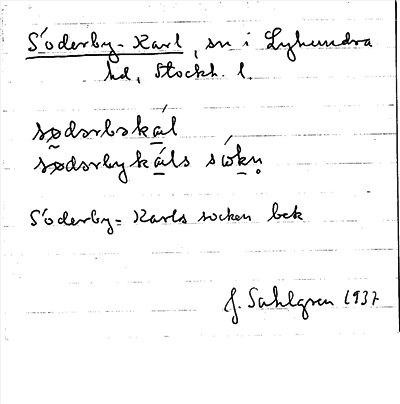 Söderby-Karl, sn i Lyhundra
hd, Stockh. l.
sødərbskál
sødərbykáls sókṇ
Söderby-Karls socken bek
J. Sahlgren 1937